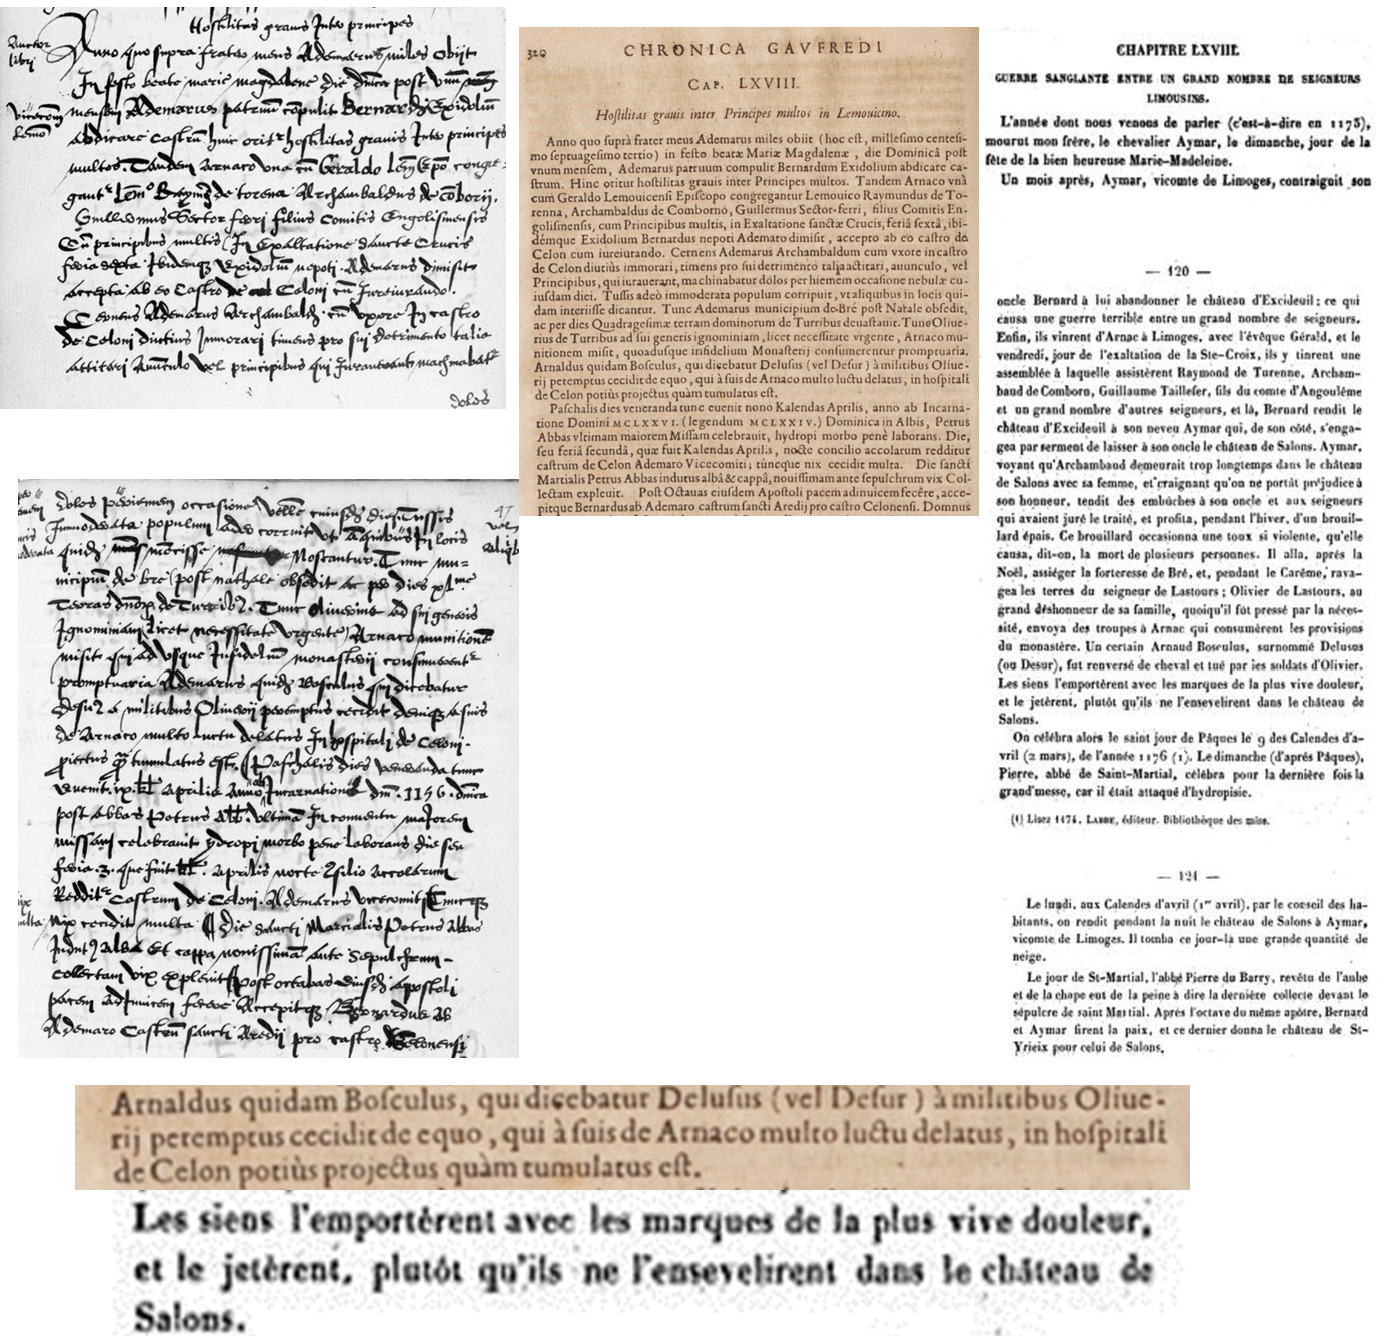 Hostilitas grauis Inter principes
Auctor
libri
Anno quo supra frater meus Ademarus miles obijt
In festo beate marie magdalene die dominica post vnum
mensem Ademarus patruum compulit Bernardum Exidolium
abdicare castrum hinc oritur hostilitas grauis Inter principes
multos. Tandem Arnaco vna cum Geraldo
de torena Archambaldus de
Guillermus Sector ferri filius Comitis Engolismensis
Cum principibus multis In Exaltatione sancte Crucis
feria sexta Ibidemque Exidolium nepoti Ademarus dimisit
accepta ab eo Castro de Celoni cum Iureiurando.
Cernens Ademarus Archambaldum cum vxore In castro
de Celoni diutius Immorari timens pro sui detrimento talia
attitari Auunculo vel principibus qui Iurauerant machinabatur
dolos
320 CHRONICA GAVFREDI
CAP. LXVIII.
Hostilitas grauis inter Principes multos in Lemouicino.
Anno quo suprà frater meus Ademarus miles obiit (hoc est, millesimo centesi-
mo septuagesimo tertio) in festo beatæ Mariæ Magdalenæ, die Dominicâ post
vnum mensem, Ademarus patruum compulit Bernardum Exidolium abdicare ca-
strum. Hinc oritur hostilitas grauis inter Principes multos. Tandem Arnaco vnà
cum Geraldo Lemouicensi Episcopo congregantur Lemouico Raymundus de To-
renna, Archambaldus de Combornó, Guillermus Sector-ferri, filius Comitis En-
golismensis, cum Principibus multis, in Exaltatione sanctæ Crucis, feriâ sextâ, ibi-
démque Exidolium Bernardus nepoti Ademaro dimisit, accepto ab eo castro de
Celon cum iureiurando. Cernens Ademarus Archambaldum cum vxore in castro
de Celon diutiùs immorari, timens pro sui detrimento talia actitari, auunculo, vel
Principibus, qui iurauerant, machinabatur dolos per hiemem occasione nebulæ cu-
iusdam diei. Tussis adeò immoderata populum corripuit, vt aliquibus in locis qui-
dam interiisse dicantur. Tunc Ademarus municipium de Bré post Natale obsedit,
ac per dies Quadragesimæ terram dominorum de Turribus deuastauit. Tunc Oliue-
rius de Turribus ad sui generis ignominiam, licet necessitate vrgente, Arnaco mu-
nitionem misit, quoadusque infidelium Monasterij consumerentur promptuaria.
Arnaldus quidam Bosculus, qui dicebatur Delusus (vel Desur) à militibus Oliue-
rij peremptus cecidit de equo, qui à suis de Arnaco multo luctu delatus, in hospitali
de Celon potiùs projectus quàm tumulatus est.
Paschalis dies veneranda tunc euenit nono Kalendas Aprilis, anno ab Incarna-
tione Domini MCLXXVI. (legendum MCLXXIV.) Dominica in Albis, Petrus
Abbas vltimam maiorem Missam celebrauit, hydropi morbo penè laborans. Die,
seu feriâ secundâ, quæ fuit Kalendas Aprilis, nocte concilio accolarum redditur
castrum de Celon Ademaro Vicecomiti; túncque nix cecidit multa. Die sancti
Martialis Petrus Abbas indutus albâ & cappâ, nouissimam ante sepulchrum vix Col-
lectam expleuit. Post Octauas eiusdem Apostoli pacem adinuicem fecêre, acce-
pitque Bernardus ab Ademaro castrum sancti Aredij pro castro Celonensi. Domnus
CHAPITRE LXVIII.
GUERRE SANGLANTE ENTRE UN GRAND NOMBRE DE SEIGNEURS
LIMOUSINS.
L'année dont nous venons de parler (c'est-à-dire en 1173),
mourut mon frère, le chevalier Aymar, le dimanche, jour de la
fête de la bien heureuse Marie-Madeleine.
Un mois après, Aymar, vicomte de Limoges, contraignit son
— 120 —
oncle Bernard à lui abandonner le château d'Excideuil; ce qui
causa une guerre terrible entre un grand nombre de seigneurs.
Enfin, ils vinrent d'Arnac à Limoges, avec l'évêque Gérald, et le
vendredi, jour de l'exaltation de la Ste-Croix, ils y tinrent une
assemblée à laquelle assistèrent Raymond de Turenne, Archam-
baud de Comborn, Guillaume Taillefer, fils du comte d'Angoulême
et un grand nombre d'autres seigneurs, et là, Bernard rendit le
château d'Excideuil à son neveu Aymar qui, de son côté, s'enga-
gea par serment de laisser à son oncle le château de Salons. Aymar,
voyant qu'Archambaud demeurait trop longtemps dans le château
de Salons avec sa femme, et craignant qu'on ne portât préjudice à
son honneur, tendit des embûches à son oncle et aux seigneurs
qui avaient juré le traité, et profita, pendant l'hiver, d'un brouil-
lard épais. Ce brouillard occasionna une toux si violente, qu'elle
causa, dit-on, la mort de plusieurs personnes. Il alla, après la
Noël, assiéger la forteresse de Bré, et, pendant le Carême, rava-
gea les terres du seigneur de Lastours; Olivier de Lastours, au
grand déshonneur de sa famille, quoiqu'il fût pressé par la néces-
sité, envoya des troupes à Arnac qui consumèrent les provisions
du monastère. Un certain Arnaud Bosculus, surnommé Delusus
(ou Desur), fut renversé de cheval et tué par les soldats d'Olivier.
Les siens l'emportèrent avec les marques de la plus vive douleur,
et le jetèrent, plutôt qu'ils ne l'ensevelirent dans le château de
Salons.
On célébra alors le saint jour de Pâques le 9 des Calendes d'a-
vril (2 mars), de l'année 1176 (1). Le dimanche (d'après Pâques),
Pierre, abbé de Saint-Martial, célébra pour la dernière fois la
grand'messe, car il était attaqué d'hydropisie.
(1) Lisez 1174. LABBE, éditeur. Bibliothèque des miss.
— 121 —
Le lundi, aux Calendes d'avril (1er avril), par le conseil des ha-
bitants, on rendit pendant la nuit le château de Salons à Aymar,
vicomte de Limoges. Il tomba ce jour-là une grande quantité de
neige.
Le jour de St-Martial, l'abbé Pierre du Barry, revêtu de l'aube
et de la chape eut de la peine à dire la dernière collecte devant le
sépulcre de saint Martial. Après l'octave du même apôtre, Bernard
et Aymar firent la paix, et ce dernier donna le château de St-
Yrieix pour celui de Salons.
47
dolos occasione
Immoderata populum adeo corruit vt Aliquibus In locis
noscantur. Tunc mu-
nicipium de bre (post nathale obsedit ac per dies
Terras de Turribus. Tunc oliuerius ad sui generis
Ignominiam licet necessitate vrgente) Arnaco munitionem
misit qui ad vsque Infidelium monasterij consumerentur
promptuaria Ademarus quidam Bosculus qui dicebatur
desur a militibus Oliuerij peremptus cecidit a suis
de Arnaco multo luctu delatus In hospitali de Celoni.
tumulatus est. (Paschalis dies veneranda tunc
euenit. Aprilis Incarnationis
post abbas Petrus vltimam In conuentu maiorem
missam celebrauit ydropi morbo pene laborans die seu
feria. Aprilis nocte accolarum
Reddit Castrum de Celoni. Ademarus vicecomiti tuncque
nix cecidit multa Die sancti Marcialis Petrus Abbas
Alba Et cappa nouissimam ante sepulchrum-
collectam vix expleuit post octabas apostoli
pacem adInuicem fecere Accepitque Bernardus ab
Ademaro Castrum sancti Aredij pro castro Celonensi
Arnaldus quidam Bosculus, qui dicebatur Delusus (vel Desur) à militibus Oliue-
rij peremptus cecidit de equo, qui à suis de Arnaco multo luctu delatus, in hospitali
de Celon potiùs projectus quàm tumulatus est.
Les siens l'emportèrent avec les marques de la plus vive douleur,
et le jetèrent, plutôt qu'ils ne l'ensevelirent dans le château de
Salons.